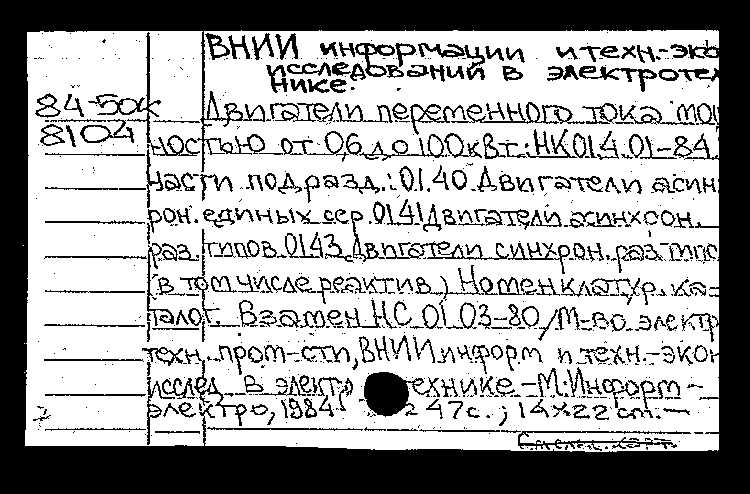 ВНИИ информации и техн.-эко
исследований в электроте
нике.
84-50к Двигатели переменного тока мощ
8104 ностью от 0,6 до 100 квт.: НК 01.4.01-84.
части подразд.: 01.40 Двигатели асин
рон. единых сер. 0141 Двигатели асинхрон.
раз. типов. 0143. Двигатели синхрон. раз. типо
(в том числе реактив.) Номенклатур. ка-
талог. Взамен НС 01 03-80/М-во электр
техн. пром-сти, ВНИИ информ и техн.-экон
исслед. в электр технике.-М.: Информ-
электро, 1984 47с.; 14×22 cm.—